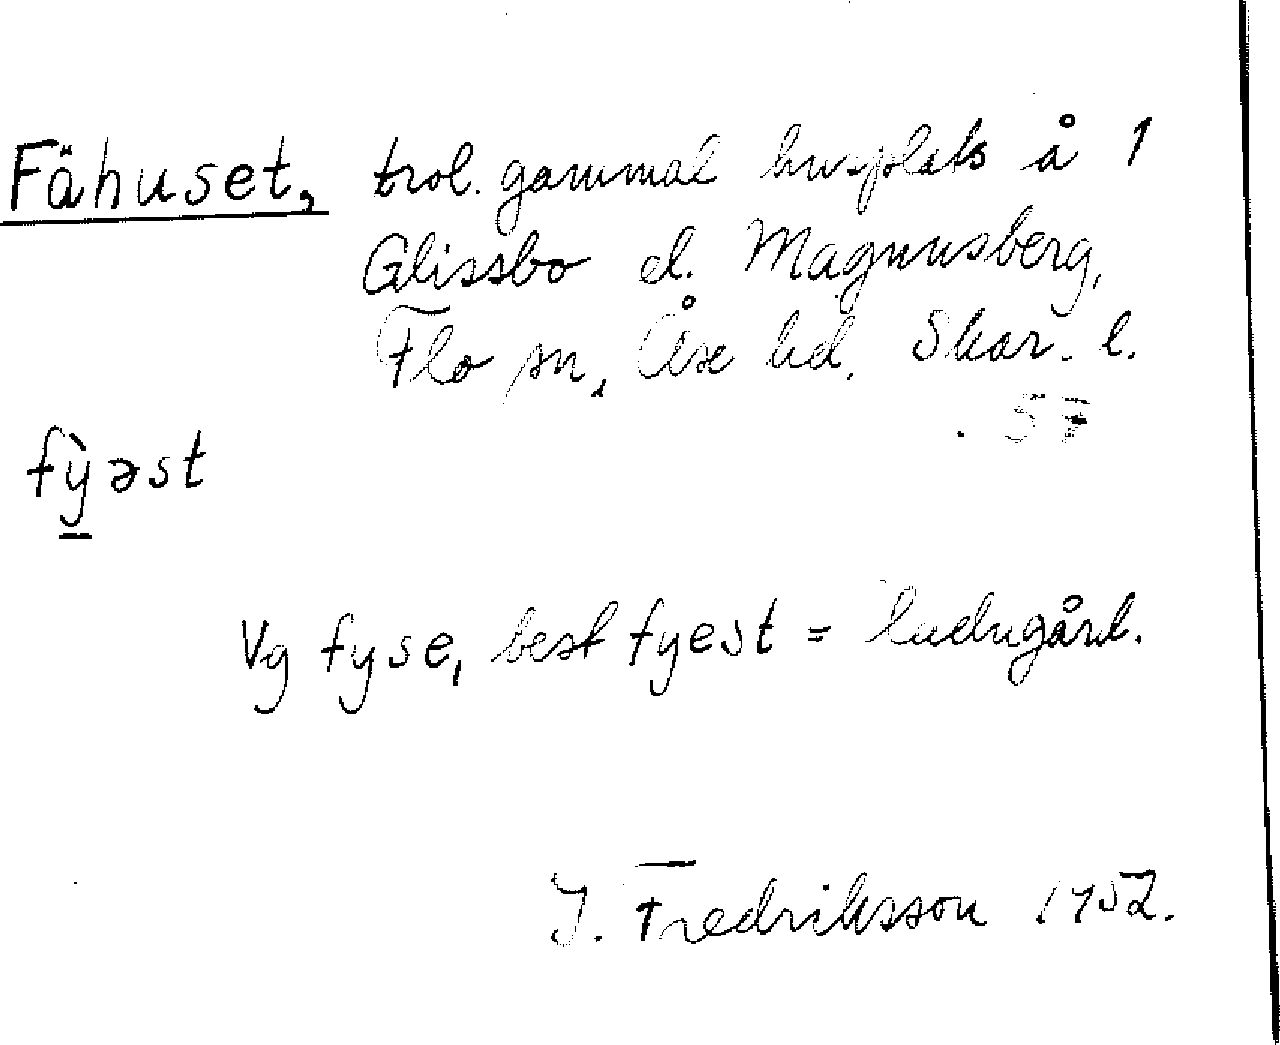 Fähuset, trol. gammal husplats å 1
Glissbo el. Magnusberg,
Flo sn, Åse hd. Skar. l.
. 57
fỳ̠əst
Vg fyse, best fyest = ladugård.
J. Fredriksson 1952.